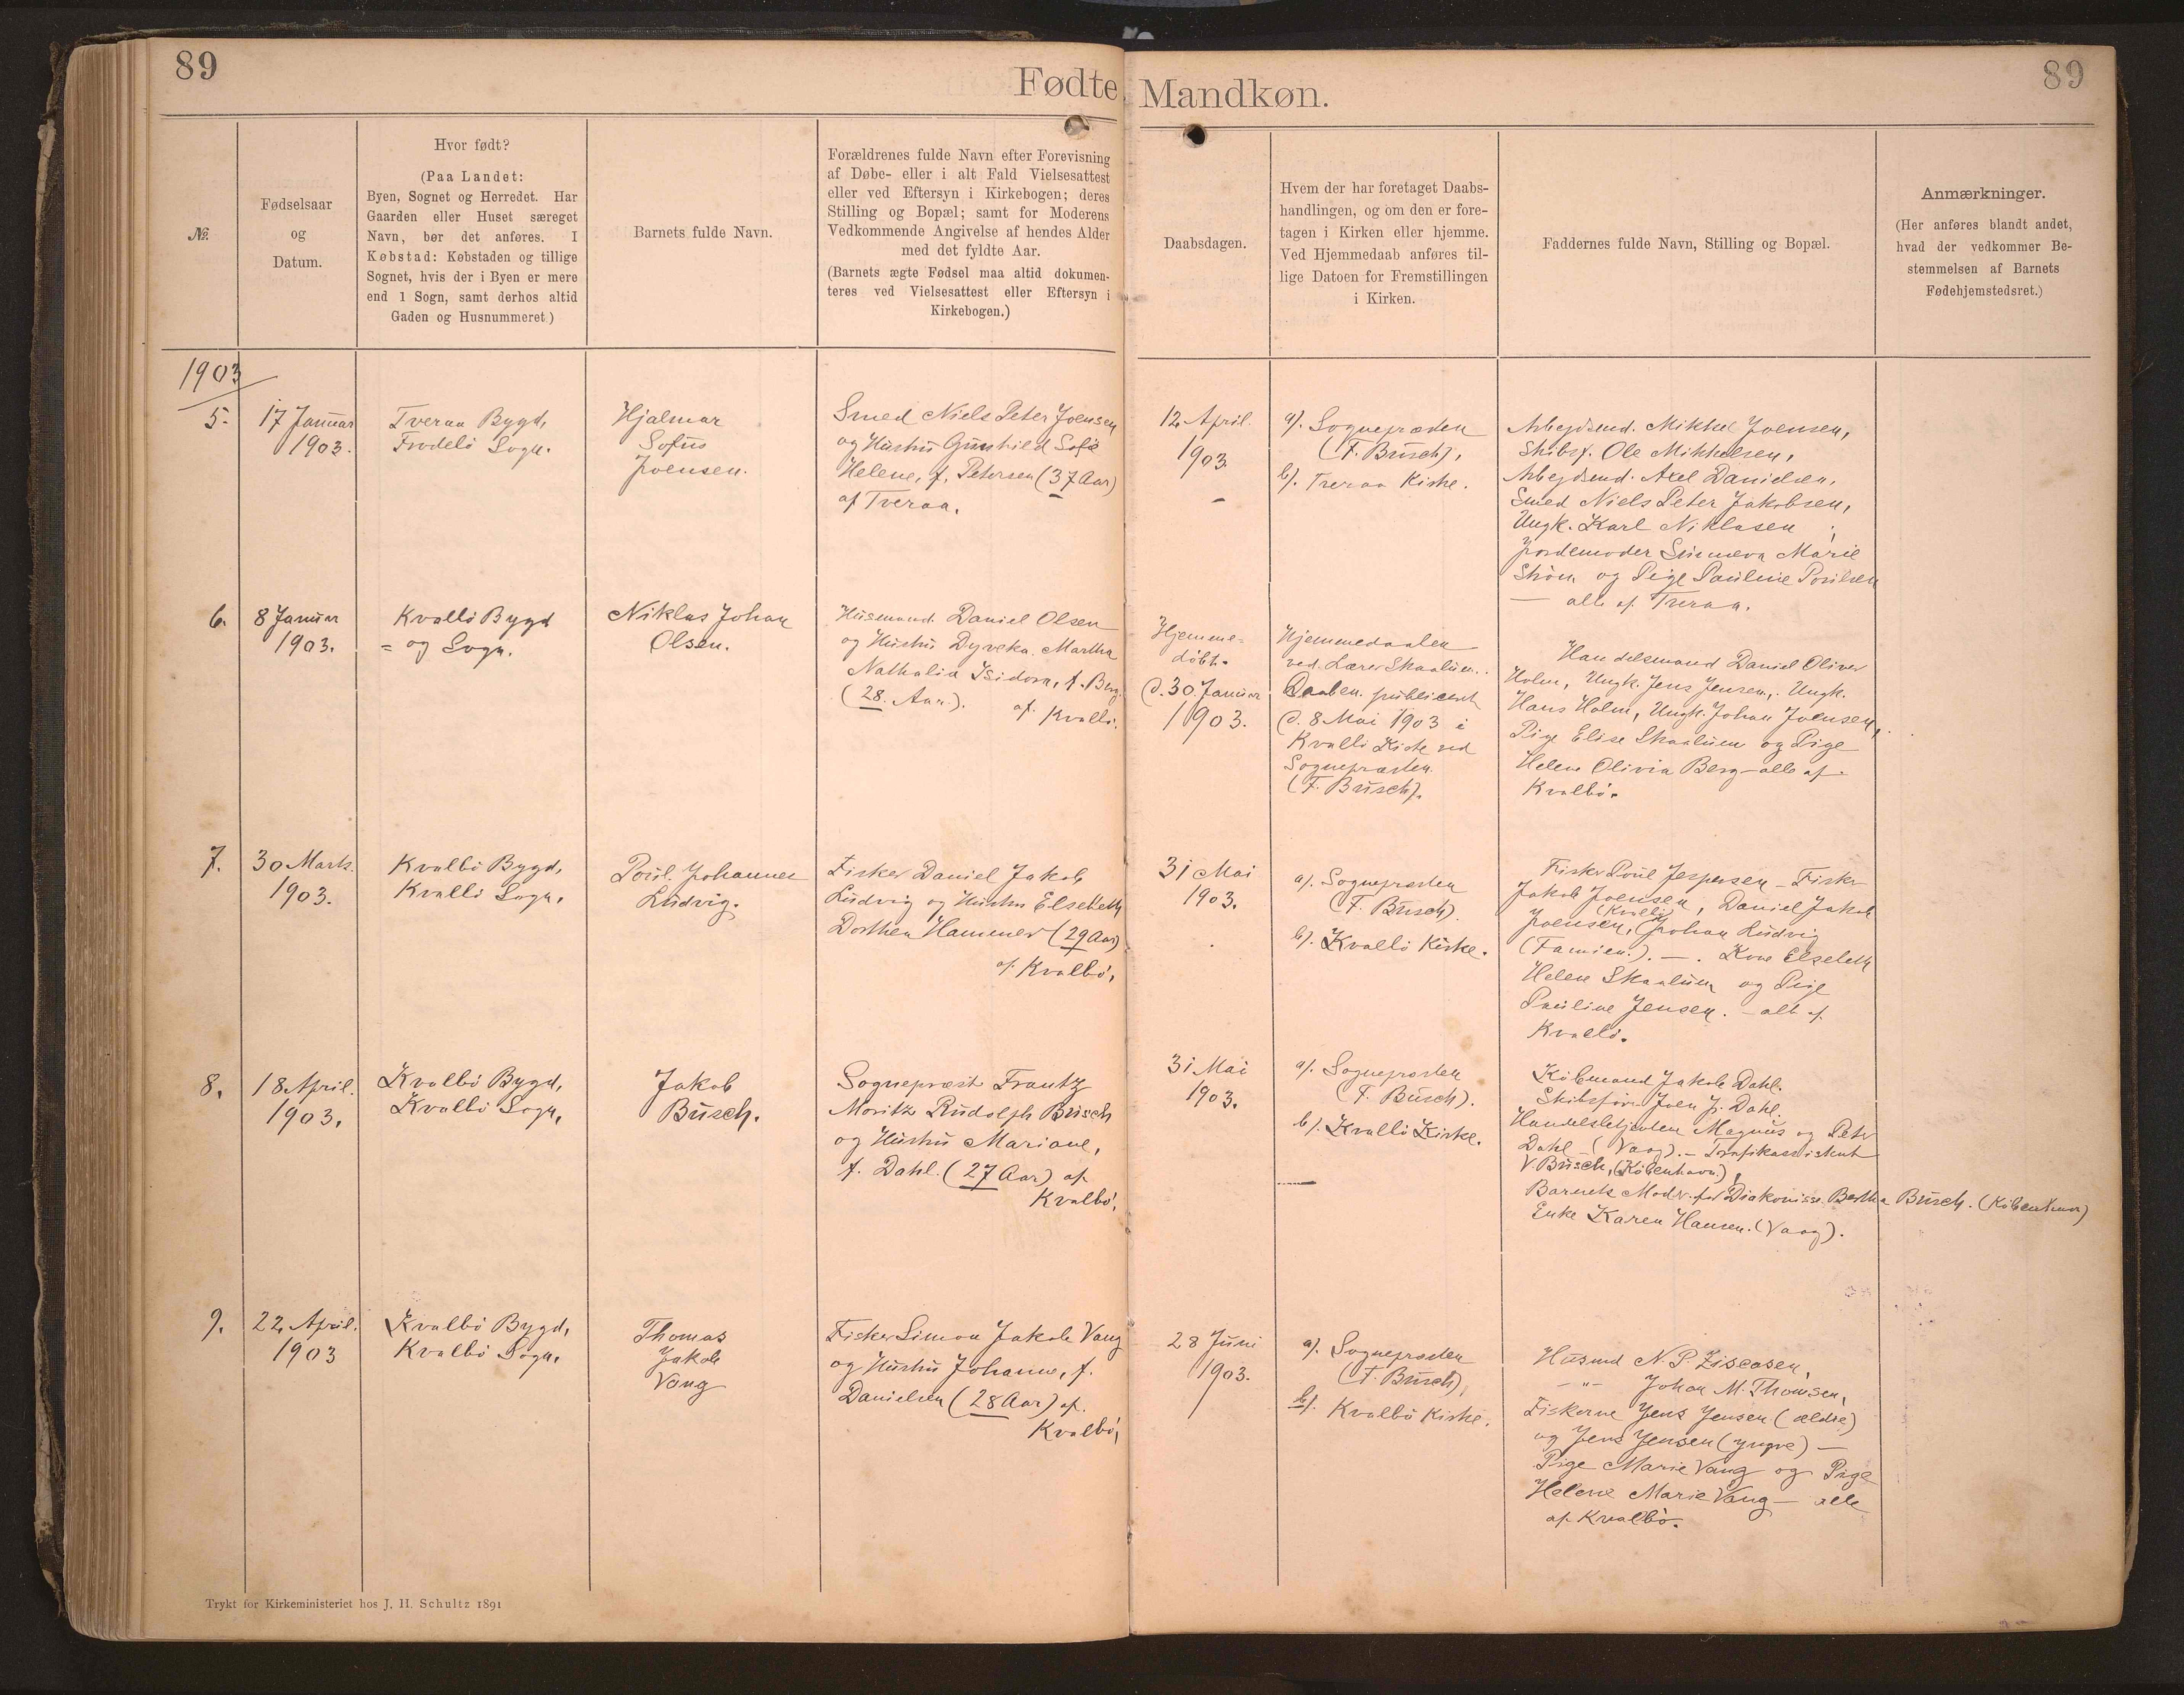 89
Fødte
Mandkøn.
89
№.
Fødselsaar
og
Datum.
Hvor født?
(Paa Landet:
Byen, Sognet og Herredet. Har
Gaarden eller Huset særeget
Navn, bør det anføres. I
Købstad: Købstaden og tillige
Sognet, hvis der i Byen er mere
end 1 Sogn, samt derhos altid
Gaden og Husnummeret)
Barnets fulde Navn.
Forældrenes fulde Navn efter Forevisning
af Døbe- eller i alt Fald Vielsesattest
eller ved Eftersyn i Kirkebogen; deres
Stilling og Bopæl; samt for Moderens
Vedkommende Angivelse af hendes Alder
med det fyldte Aar.
(Barnets ægte Fødsel maa altid dokumen-
teres ved Vielsesattest eller Eftersyn i
Kirkebogen.)
Daabsdagen.
Hvem der har foretaget Daabs-
handlingen, og om den er fore-
tagen i Kirken eller hjemme.
Ved Hjemmedaab anføres til-
lige Datoen for Fremstillingen
i Kirken.
Faddernes fulde Navn, Stilling og Bopæl.
Anmærkninger.
(Her anføres blandt andet,
hvad der vedkommer Be-
stemmelsen af Barnets
Fødehjemstedsret.)
1903
5.
17 Januar
1903.
Tveraa Bygd,
Frodebö Sogn.
Hjalmar
Sofus
Joensen.
Smed Niels Peter Joensen
og Hustru Gunhild Sofie
Helene, f. Petersen (37 Aar)
af Tveraa.
12 April.
1903
a). Sognepræsten
(F. Busch),
b). Tveraa Kirke.
Arbejdsmd. Mikkel Joensen,
Skibsf. Ole Mikkelsen,
Arbejdsmd. Axel Danielsen,
Smed Niels Peter Jakobsen,
Ungk. Karl Niklasen,
Jordemoder Sunneva Marie
Ström og Pige Pauline Poulsen
— alle af Tveraa.
6.
8 Januar
1903.
Kvalbö Bygd
= og Sogn.
Niklas Johan
Olsen.
Husmand Daniel Olsen
og Hustru Dyveka Martha
Nathalia Isidora, f. Berg.
(28. Aar). af Kvalbö.
Hjemme=
döbt.
d. 30. Januar
1903.
Hjemmedaaben
ved Lærer Skaalum.
Daaben publiceret
d. 8 Mai 1903 i
Kvalbö Kirke ved
Sognepræsten.
(F. Busch).
Handelsmand Daniel Oliver
Holm, Ungk. Jens Jensen, Ungk.
Hans Holm, Ungk. Johan Joensen,
Pige Elise Skaalum og Pige
Helene Olivia Berg – alle af
Kvalbö.
7.
30 Marts.
1903.
Kvalbö Bygd,
Kvalbö Sogn.
Poul Johannes
Ludvig.
Fisker Daniel Jakob
Ludvig og Hustru Elsebeth
Dorthea Hammer (29 Aar)
af Kvalbö,
31 Mai
1903.
a). Sognepræsten
(F. Busch).
b). Kvalbö Kirke.
Fisker Poul Jespersen – Fisker
Jakob Joensen, Daniel Jakob
Joensen, (Kvalbö) Johan Ludvig
(Famien). —. Kone Elsebeth
Helene Skaalum og Pige
Pauline Jensen. – alle af
Kvalbö.
8.
18 April.
1903.
Kvalbö Bygd,
Kvalbö Sogn,
Jakob
Busch.
Sognepræst Frantz
Moritz Rudolph Busch
og Hustru Mariane,
f. Dahl. (27 Aar) af
Kvalbö,
31 Mai
1903.
a). Sognepræsten
(F. Busch).
b). Kvalbö Kirke.
Köbmand Jakob Dahl.
Skibsförer Joen J. Dahl.
Handelsbetjentene Magnus og Peter
Dahl – (Vaag). – Trafikassistent
V. Busch, (Köbenhavn),
Barnets Moder. for Diakonisse Bertha Busch. (Köbenhavn)
Enke Karen Hansen. (Vaag).
9.
22 April.
1903
Kvalbö Bygd,
Kvalbö Sogn.
Thomas
Jakob
Vang
Fisker Simon Jakob Vang
og Hustru Johanne, f.
Danielsen (28 Aar) af
Kvalbö,
28 Juni
1903.
a). Sognepræsten
(F. Busch),
b). Kvalbö Kirke.
Husmd N. P. Ziscasen,
–"– Johan M. Thomsen,
Fiskerne Jens Jensen (ældre)
og Jens Jensen (yngre) –
Pige Marie Vang og Pige
Helene Marie Vang – alle
af Kvalbö.
Trykt for Kirkeministeriet hos J. H. Schultz 1891